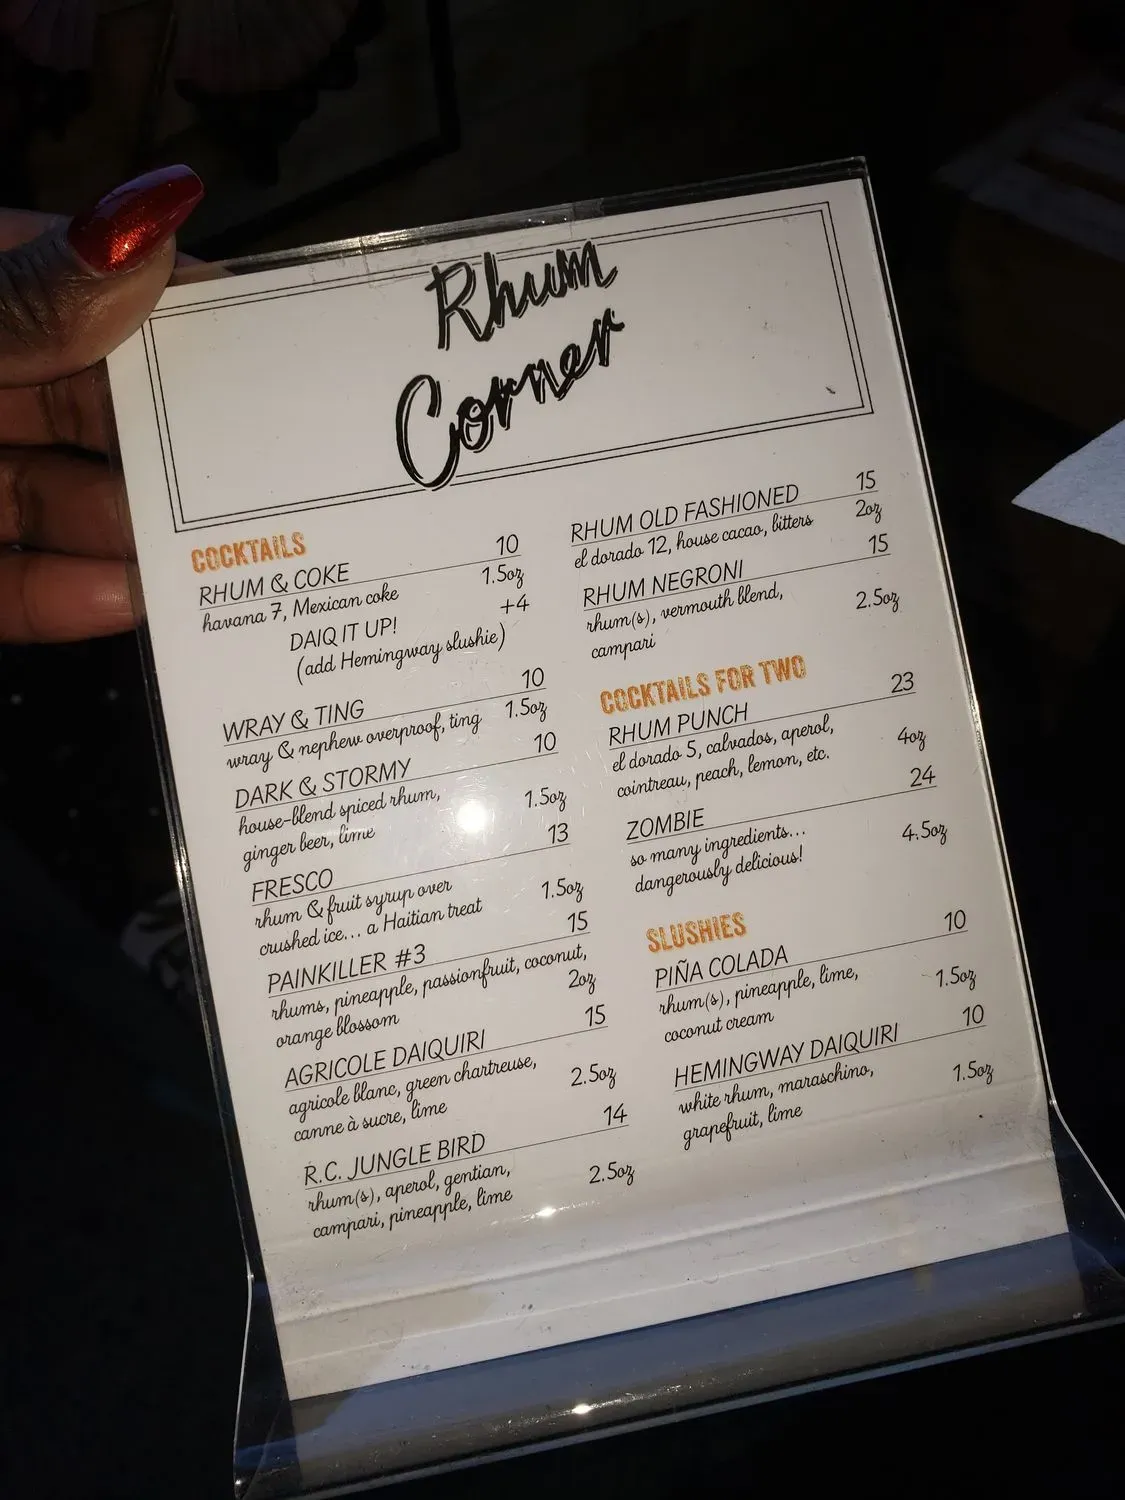 Rhum
Corner
COCKTAILS
RHUM & COKE 10
havana 7, Mexican coke 1.5oz
DAIQ IT UP! +4
(add Hemingway slushie)
WRAY & TING 10
wray & nephew overproof, ting 1.5oz
DARK & STORMY 10
house-blend spiced rhum,
ginger beer, lime 1.5oz
FRESCO 13
rhum & fruit syrup over
crushed ice... a Haitian treat 1.5oz
PAINKILLER #3 15
rhums, pineapple, passionfruit, coconut,
orange blossom 2oz
AGRICOLE DAIQUIRI 15
agricole blanc, green chartreuse,
canne à sucre, lime 2.5oz
R.C. JUNGLE BIRD 14
rhum(s), aperol, gentian,
campari, pineapple, lime 2.5oz
RHUM OLD FASHIONED 15
el dorado 12, house cacao, bitters 2oz
RHUM NEGRONI 15
rhum(s), vermouth blend,
campari 2.5oz
COCKTAILS FOR TWO
RHUM PUNCH 23
el dorado 5, calvados, aperol,
cointreau, peach, lemon, etc. 4oz
ZOMBIE 24
so many ingredients...
dangerously delicious! 4.5oz
SLUSHIES
PIÑA COLADA 10
rhum(s), pineapple, lime,
coconut cream 1.5oz
HEMINGWAY DAIQUIRI 10
white rhum, maraschino,
grapefruit, lime 1.5oz